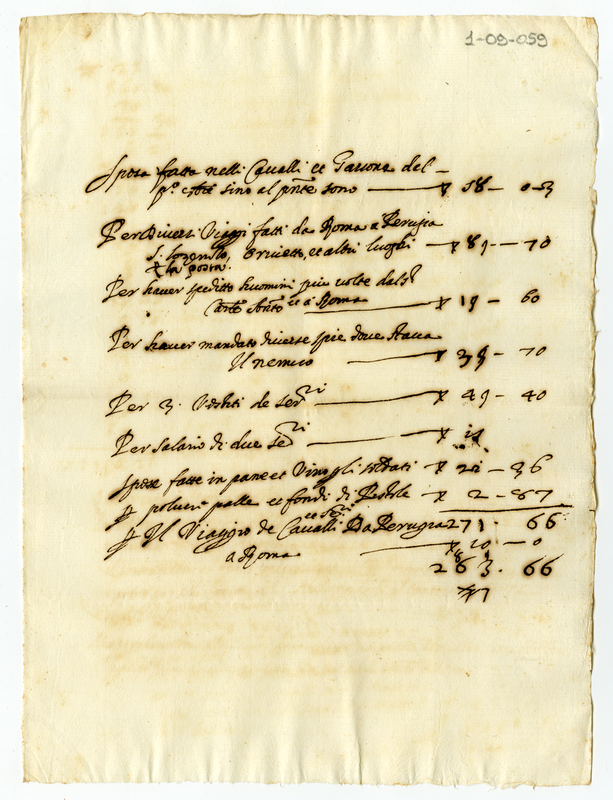 1-09-059
Spesa fatta nelli Cavalli et Garzone del
p.º sino al pnte sono 58 - 03
Per Diversi Viaggi fatti da Roma a Perugia
S. Lorenzo, Orvieto, et altri luoghi 89 - 70
per la posta.
Per haver spedito huomini piu volte dal S.r
Carlo et a Roma 19 - 60
Per haver mandato diverse spie dove stava
Il nemico 39 - 70
Per 3. Vestiti de ser.ri 49 - 40
Per salario di due se.ri
Spese fatte in pane et Vino gli soldati 21 - 36
polvere palle et fondi di Pistole 2 - 87
Il Viaggio de Cavalli et Se.ri Da Perugia 271. 66
a Roma 10 - 0
263. 66